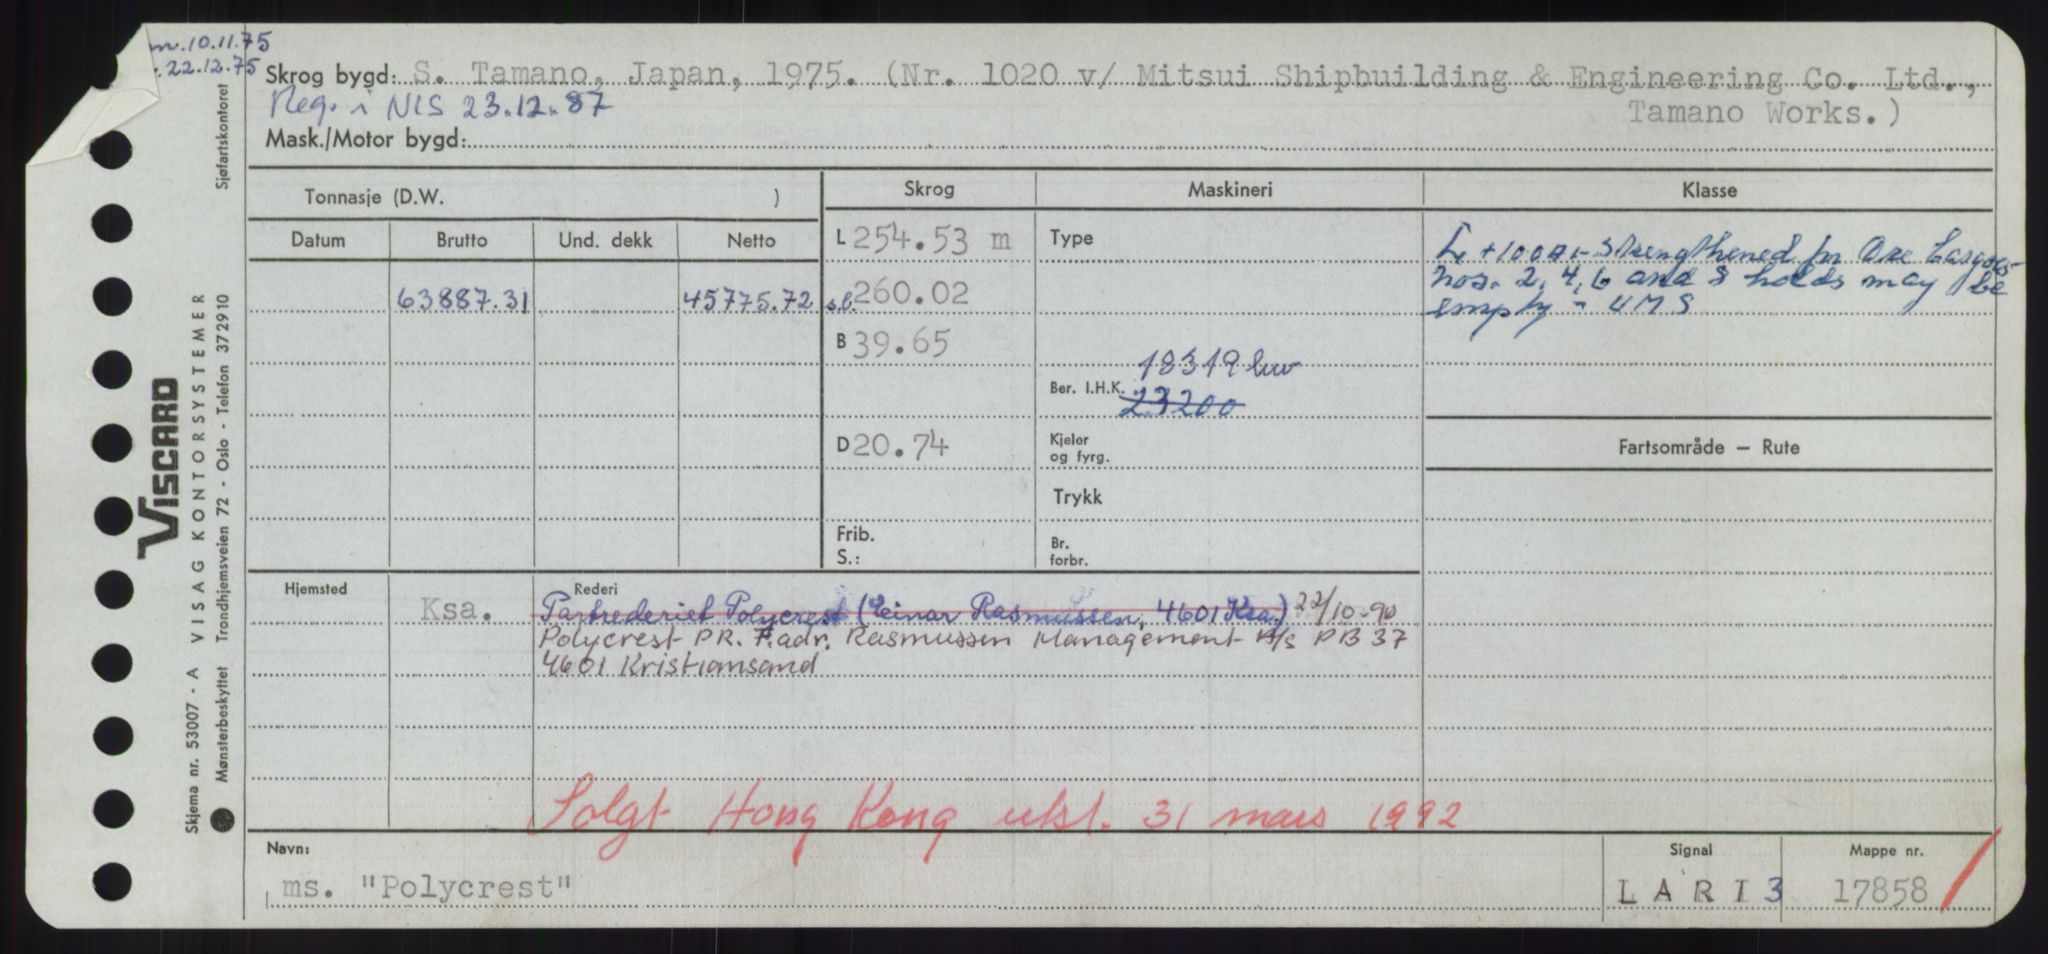 10.11.75
22.12.75
Skrog bygd: S. Tamano, Japan, 1975. (Nr. 1020 v/ Mitsui Shipbuilding & Engineering Co. Ltd.,
Tamano Works.)
Reg. i NIS 23.12.87
Mask./Motor bygd:
Tonnasje (D.W. )
Skrog Maskineri Klasse
Datum Brutto Und. dekk Netto
L 254.53 m Type
strengthened for Ore Cargoes
nos. 2, 4, 6 and 8 holds may be
empty - UMS
63887.31 45775.72 s.l. 260.02
B 39.65
18319 kw
Ber. I.H.K. 23200
D 20.74
Kjeler
og fyrg.
Fartsområde — Rute
Trykk
Frib.
S.:
Br.
forbr.
Hjemsted Rederi
Ksa. Partrederiet Polycrest (Einar Rasmussen, 4601 Ksa.) 22/10-90
Polycrest PR. F.adr. Rasmussen Management A/S PB 37
4601 Kristiansand
Solgt Hong Kong utsl. 31 mars 1992
Navn: Signal Mappe nr.
ms. "Polycrest" LARI3 17858
VISCARD
VISAG KONTORSYSTEMER
Sjøfartskontoret
Trondhjemsveien 72 - Oslo - Telefon 372910
Skjema nr. 53007 - A
Mønsterbeskyttet